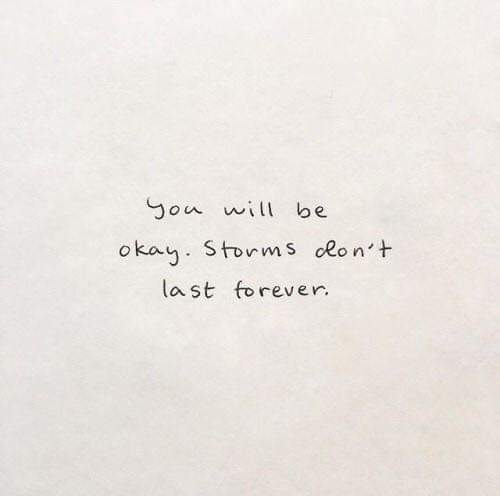 you will be
okay. Storms don't
last forever.